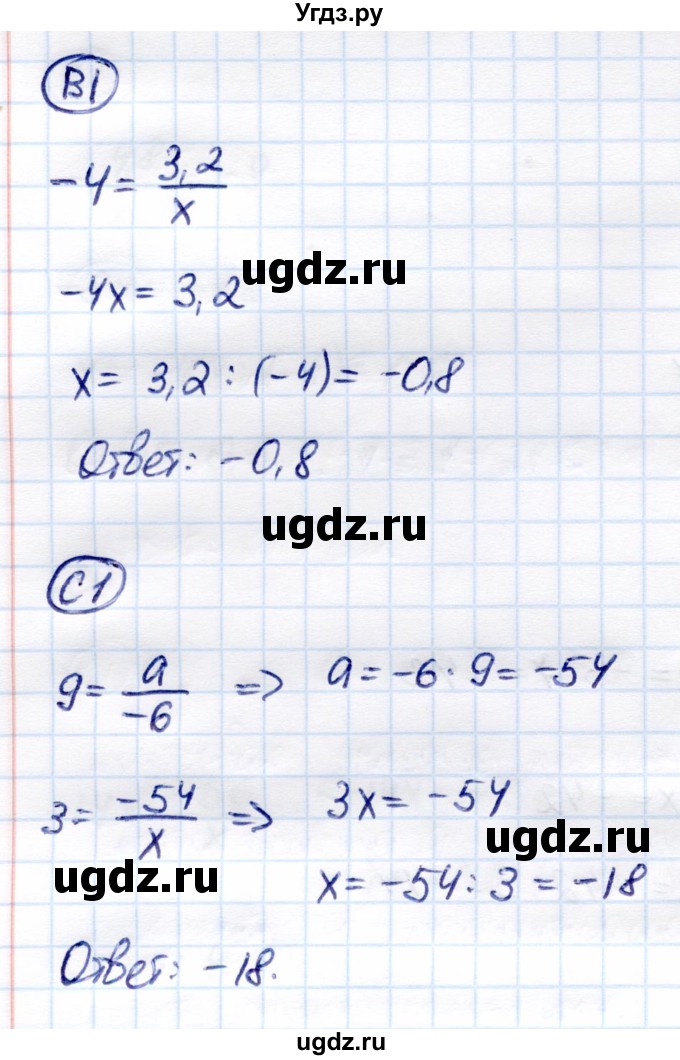 Угдз.ру
В1
-4 = 3,2/x
ugdz.ru
-4x = 3,2
x = 3,2 : (-4) = -0,8
Ответ: -0,8
ugdz.ru
С1
9 = a/-6 => a = -6 · 9 = -54
3 = -54/x => 3x = -54
ugdz.ru
ugdz.ru
x = -54 : 3 = -18
Ответ: -18.
ugdz.ru